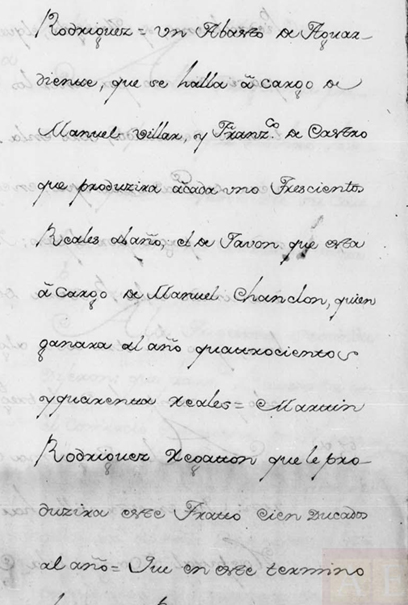 Rodriguez = un Abasto de Aguar-
diente, que se halla â cargo de
Manuel Villar, y Franz.co de Castro
que produzira âcada uno Trescientos
Reales al año; el de Javon que esta
â Cargo de Manuel Chanclon, quien
ganara al año quatrocientos
y quarenta reales = Martin
Rodriguez Regaton que le pro-
duzira este Trato cien Ducados
al año = Que en este termino